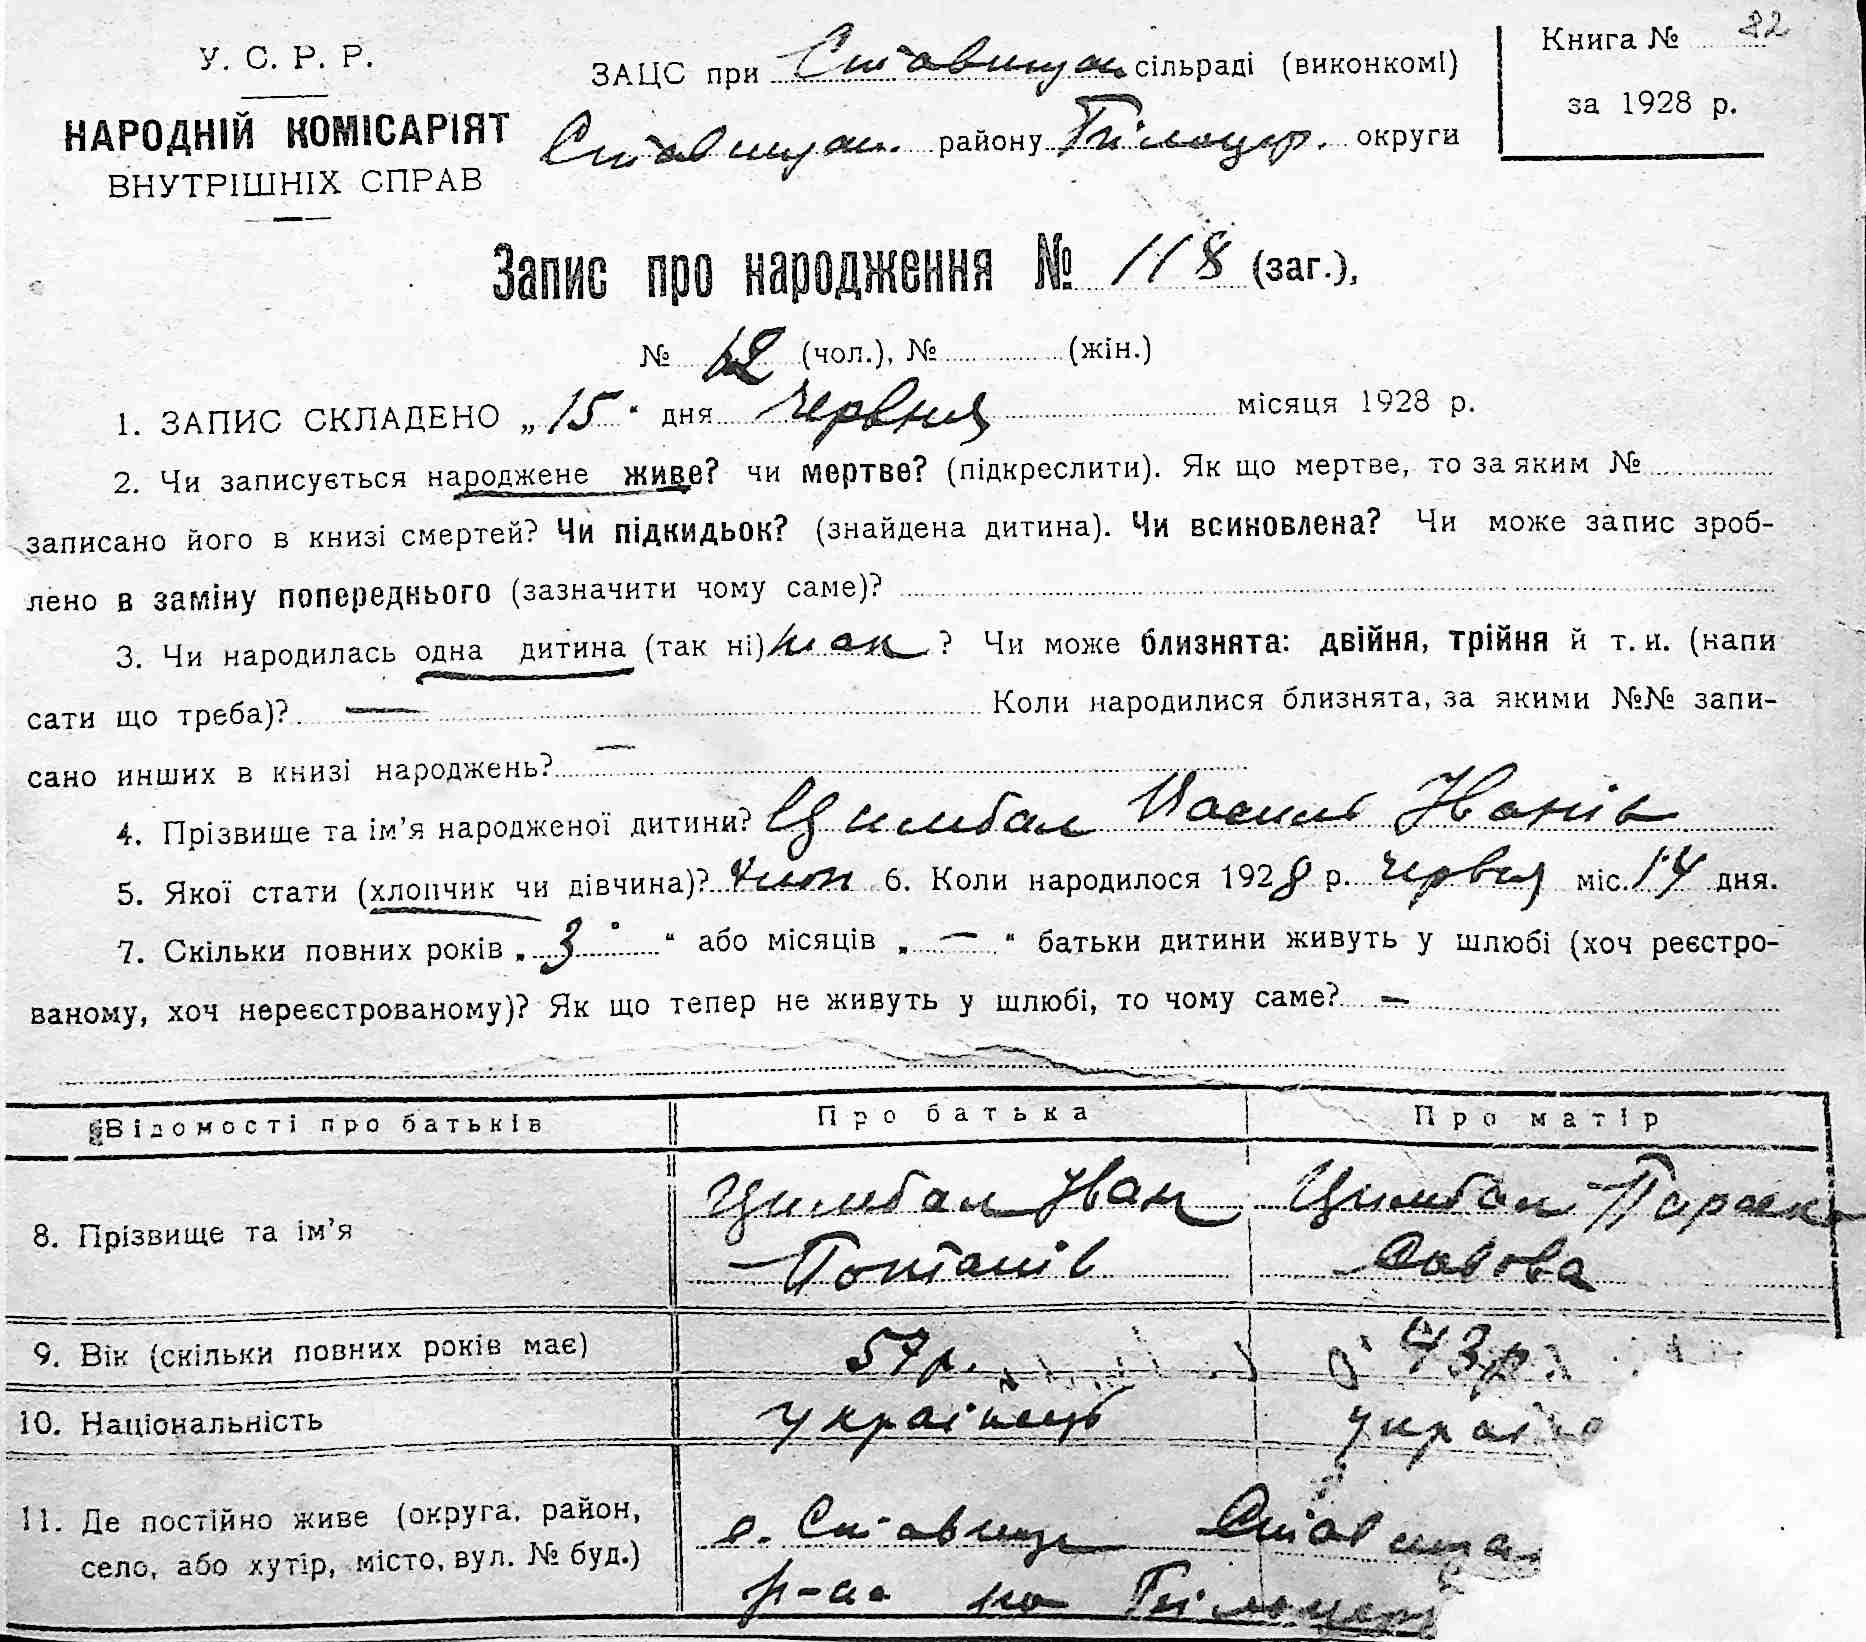 У. С. Р. Р.
НАРОДНІЙ КОМІСАРІЯТ
ВНУТРІШНІХ СПРАВ
ЗАЦС при Ставищан. сільраді (виконкомі)
Ставищан. району Білоцер. округи
Книга № 22
за 1928 р.
Запис про народження № 118 (заг.),
№ 62 (чол.), № (жін.)
1. ЗАПИС СКЛАДЕНО „ 15 “ дня червня місяця 1928 р.
2. Чи записується народжене живе? чи мертве? (підкреслити). Як що мертве, то за яким №
записано його в книзі смертей? Чи підкидьок? (знайдена дитина). Чи всиновлена? Чи може запис зроб-
лено в заміну попереднього (зазначити чому саме)?
3. Чи народилась одна дитина (так ні) так ? Чи може близнята: двійня, трійня й т. и. (напи
сати що треба)? — Коли народилися близнята, за якими №№ запи-
сано инших в книзі народжень? —
4. Прізвище та ім’я народженої дитини? Цимбал Василь Іванів
5. Якої стати (хлопчик чи дівчина)? хлоп 6. Коли народилося 1928 р. червня міс. 14 дня.
7. Скільки повних років „ 3 “ або місяців „ — “ батьки дитини живуть у шлюбі (хоч реєстро-
ваному, хоч нереєстрованому)? Як що тепер не живуть у шлюбі, то чому саме? —
Відомості про батьків Про батька Про матір
8. Прізвище та ім’я Цимбал Іван Цимбал Параск
Потапів Савова
9. Вік (скільки повних років має) 57 р. 43 р.
10. Національність українець україн
11. Де постійно живе (округа, район, с. Ставище Ставища
село, або хутір, місто, вул. № буд.) р-на на Білоцерк